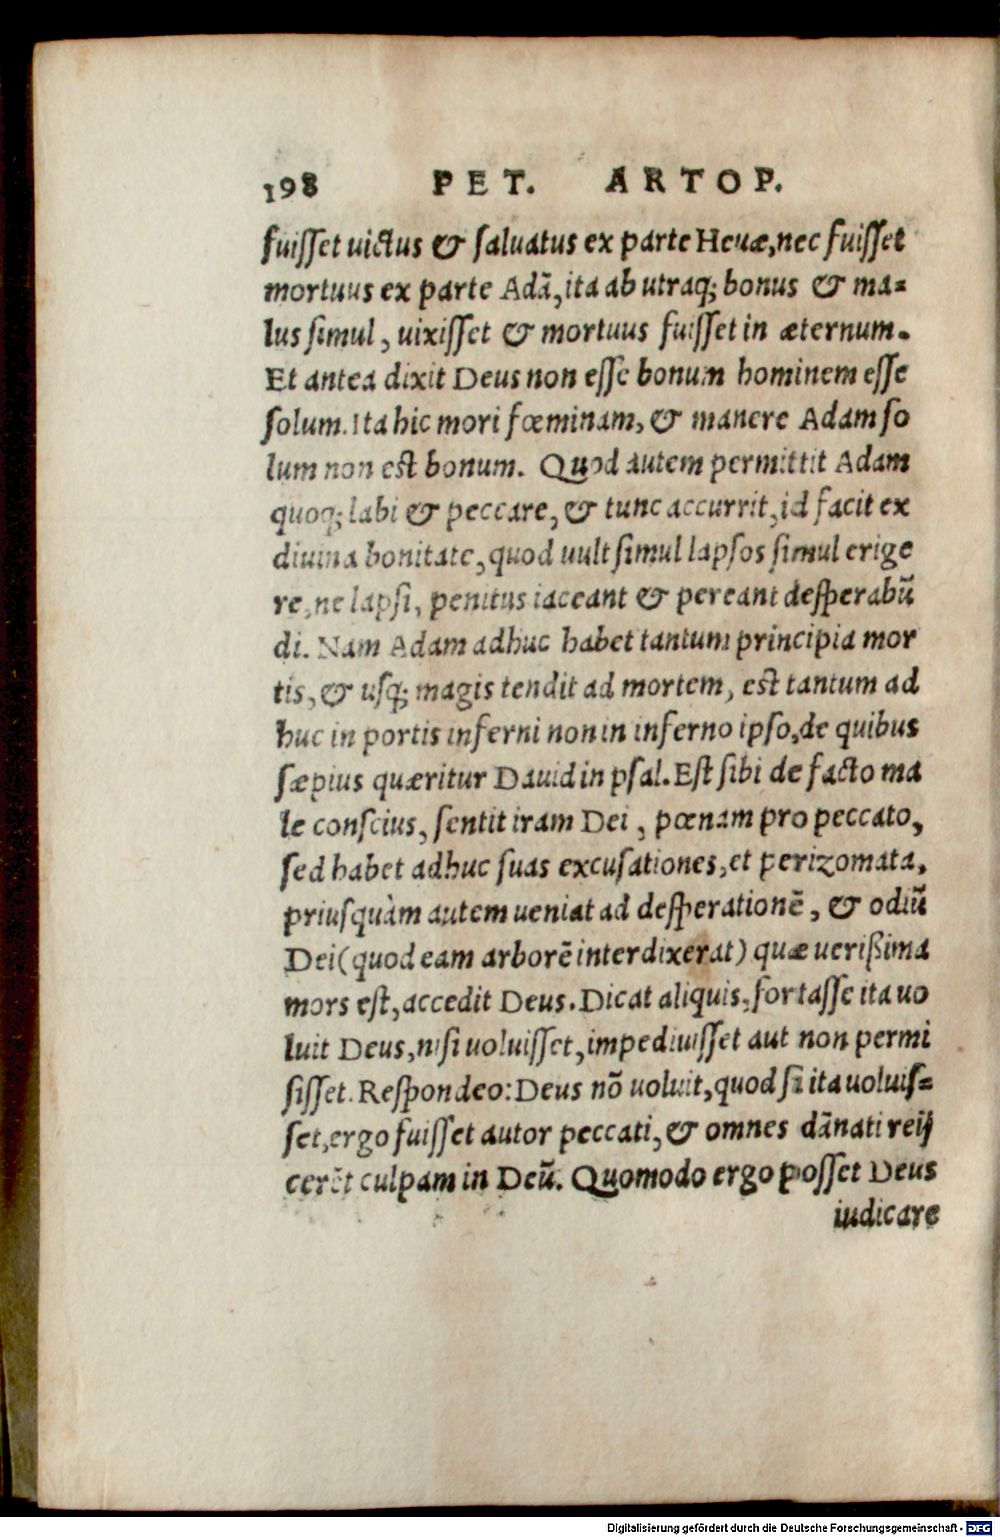 198 PET. ARTOP.
fuiſſet uictus & ſaluatus ex parte Heuæ, nec fuiſſet
mortuus ex parte Adã, ita ab utraq; bonus & ma-
lus ſimul, uixiſſet & mortuus fuiſſet in æternum.
Et antea dixit Deus non eſſe bonum hominem eſſe
ſolum. Ita hic mori fœminam, & manere Adam ſo
lum non eſt bonum. Quod autem permittit Adam
quoq; labi & peccare, & tunc accurrit, id facit ex
diuina bonitate, quod uult ſimul lapſos ſimul erige
re, ne lapſi, penitus iaceant & pereant deſperabũ
di. Nam Adam adhuc habet tantum principia mor
tis, & uſq; magis tendit ad mortem, eſt tantum ad
huc in portis inferni non in inferno ipſo, de quibus
ſæpius quæritur Dauid in pſal. Eſt ſibi de facto ma
le conſcius, ſentit iram Dei, pœnam pro peccato,
ſed habet adhuc ſuas excuſationes, et perizomata,
priuſquàm autem ueniat ad deſperationẽ, & odiũ
Dei (quod eam arborẽ interdixerat) quæ ueriſsima
mors eſt, accedit Deus. Dicat aliquis, fortaſſe ita uo
luit Deus, niſi uoluiſſet, impediuiſſet aut non permi
ſiſſet. Reſpondeo: Deus nõ uoluit, quod ſi ita uoluiſ-
ſet, ergo fuiſſet autor peccati, & omnes dãnati reij
cerẽt culpam in Deũ. Quomodo ergo poſſet Deus
iudicare
Digitalisierung gefördert durch die Deutsche Forschungsgemeinschaft - DFG